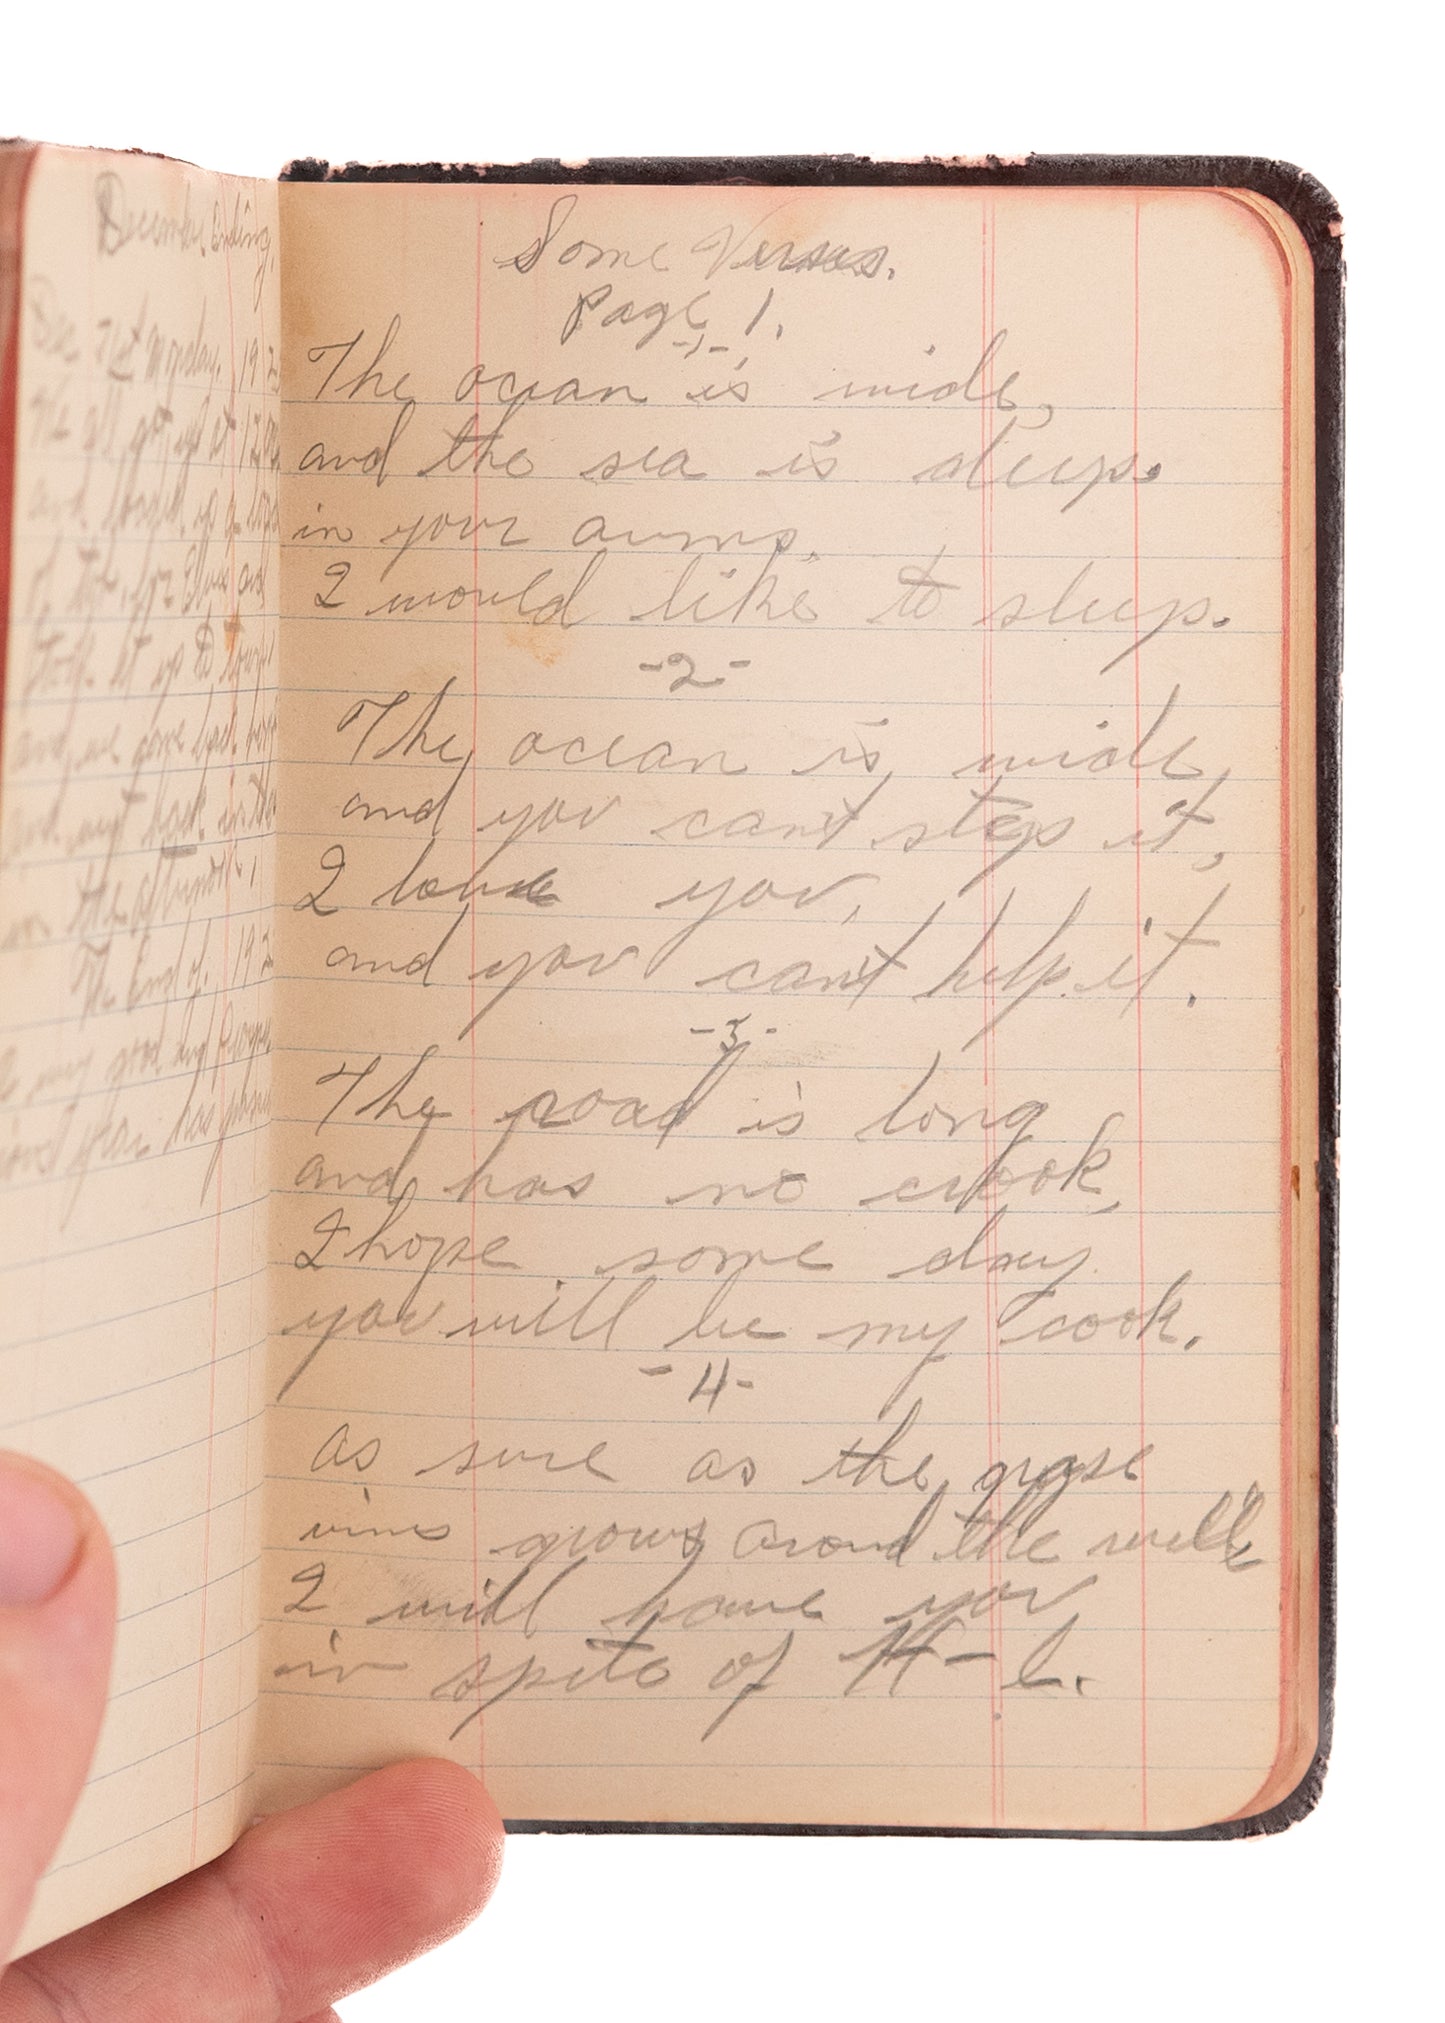 December Ending,
Dec 31st Monday. 192
We all got up at 12.00
and
of the for Olive and
took it up to
and we came back home
and went back in the
in the afternoon,
The End of. 192
year has passed
Some Verses.
Page 1.
-1-
The ocean is wide,
and the sea is deep.
in your arms.
I would like to sleep.
-2-
The ocean is wide,
and you can't step it,
I love you,
and you can't help it.
-3-
The road is long
and has no crook,
I hope some day
you will be my cook.
-4-
as sure as the grape
vines grows around the well
I will have you
in spite of H-l.